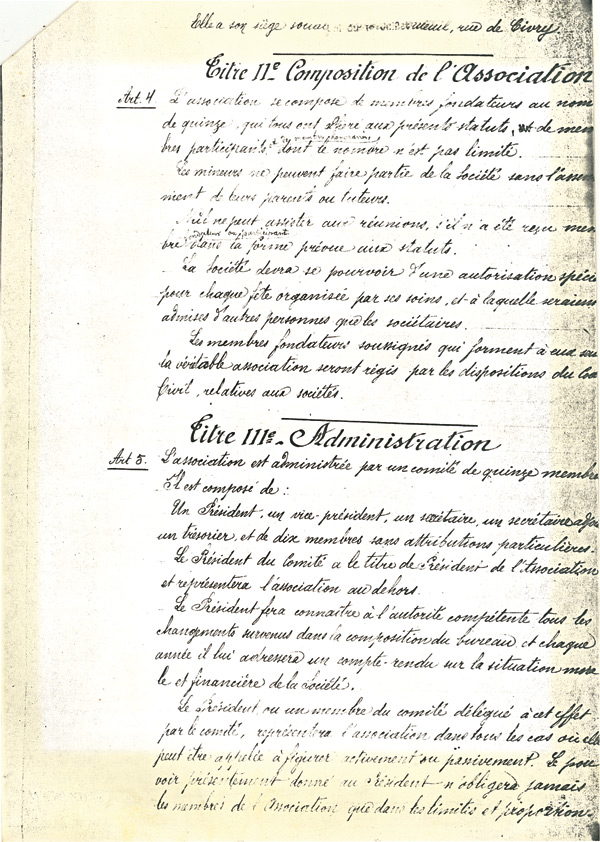 Elle a son siège social rue de Civry.
Titre IIe Composition de l'Association
Art. 4. L'association se compose de membres fondateurs au nom
de quinze, qui tous ont adhéré aux présents statuts, et de mem
bres participants et dont le nombre n'est pas limité.
Les mineurs ne peuvent faire partie de la Société sans l'assen
ment de leurs parents ou tuteurs.
Nul ne peut assister aux réunions, s'il n'a été reçu mem
fondateur ou participant
bre dans la forme prévue aux statuts.
La Société devra se pourvoir d'une autorisation spéci
pour chaque fête organisée par ses soins, et à laquelle seraien
admises d'autres personnes que les sociétaires.
Les membres fondateurs soussignés qui forment à eux seu
la véritable association seront régis par les dispositions du Co
Civil, relatives aux sociétés.
Titre IIIe - Administration
Art 5. L'association est administrée par un comité de quinze membre
Il est composé de :
Un Président, un vice-président, un secrétaire, un secrétaire adjo
un trésorier, et de dix membres sans attributions particulières.
Le Président du Comité a le titre de Président de l'Association
et représentera l'association au dehors.
Le Président fera connaître à l'autorité compétente tous les
changements survenus dans la composition du bureau et chaque
année il lui adressera un compte-rendu sur la situation mora
le et financière de la Société.
Le Président ou un membre du comité délégué à cet effet
par le comité, représentera l'association dans tous les cas où elle
peut être appelée à figurer activement ou passivement. Le pou
voir présentement donné au Président n'obligera jamais
les membres de l'Association que dans les limites et proportion-